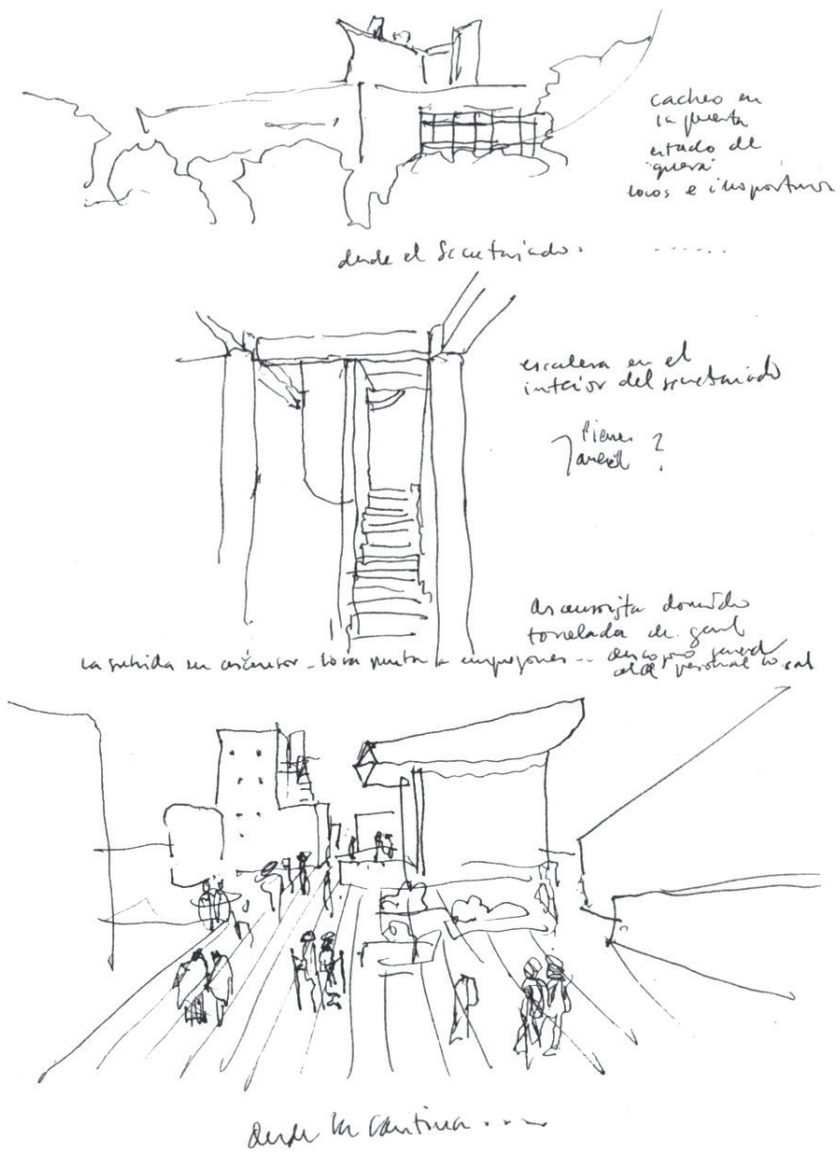 cacheo en
la puerta
estado de
"guerra"
locos e inoportunos
desde el Secretariado. ......
escalera en el
interior del secretariado
?
ascensorista dormido
tonelada de gente
La subida en ascensor - a empujones ...
personal local
desde la cantina ....